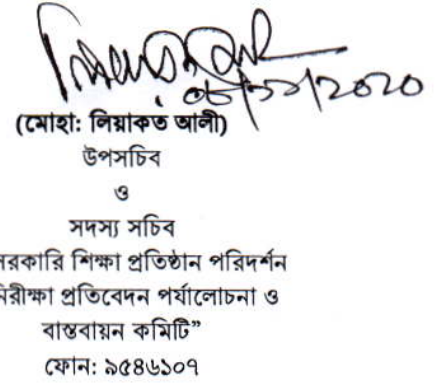 (মোহাঃ লিয়াকত আলী)
উপসচিব
ও
সদস্য সচিব
সরকারি শিক্ষা প্রতিষ্ঠান পরিদর্শন
নিরীক্ষা প্রতিবেদন পর্যালোচনা ও
বাস্তবায়ন কমিটি”
ফোন: ৯৫৪৬১০৭